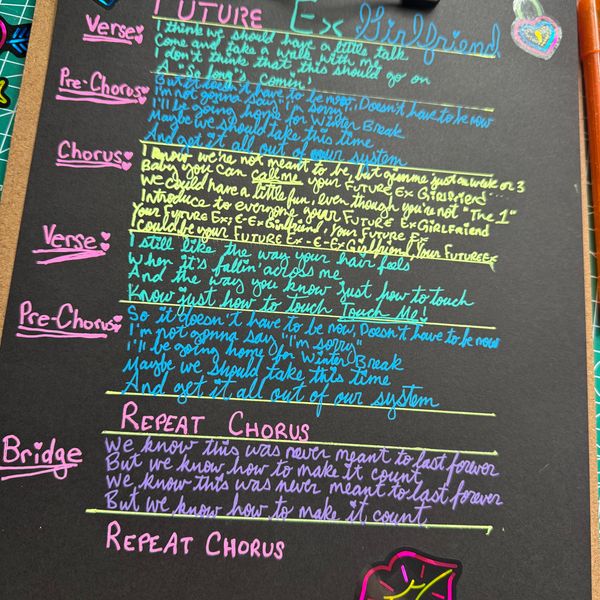 FUTURE EX Girlfriend
Verse:
I think we should have a little talk
Come and take a walk with me
I don't think that this should go on
A - so long's comin'
Pre-Chorus:
But it doesn't have to be now, Doesn't have to be now
I'm not gonna say "I'm sorry"
I'll be going home for Winter Break
Maybe we should take this time
And get it all out of our system
Chorus:
I know we're not meant to be, but gimme just an week or 3
Baby you can call me your FUTURE EX GIRLFRIEND
We could have a little fun, even though you're not "The 1"
Introduce to everyone your FUTURE EX GIRLFRIEND
Your FUTURE EX; E-EX Girlfriend, Your FUTURE EX
Could be your FUTURE EX - E - EX Girlfriend, Your FUTURE EX
Verse:
I still like the way your hair feels
When it's fallin' across me
And the way you know just how to touch
Know just how to touch Touch Me!
Pre-Chorus:
So it doesn't have to be now, Doesn't have to be now
I'm not gonna say "I'm sorry"
I'll be going home for Winter Break
Maybe we should take this time
And get it all out of our system
REPEAT CHORUS
Bridge
We know this was never meant to last forever
But we know how to make it count
We know this was never meant to last forever
But we know how to make it count
REPEAT CHORUS